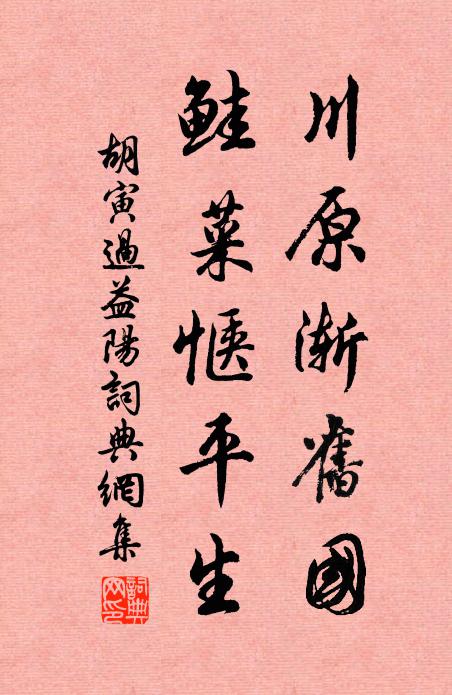 川原漸舊國
鮭菜愜平生
胡寅過益陽詞典網集
詞典網印